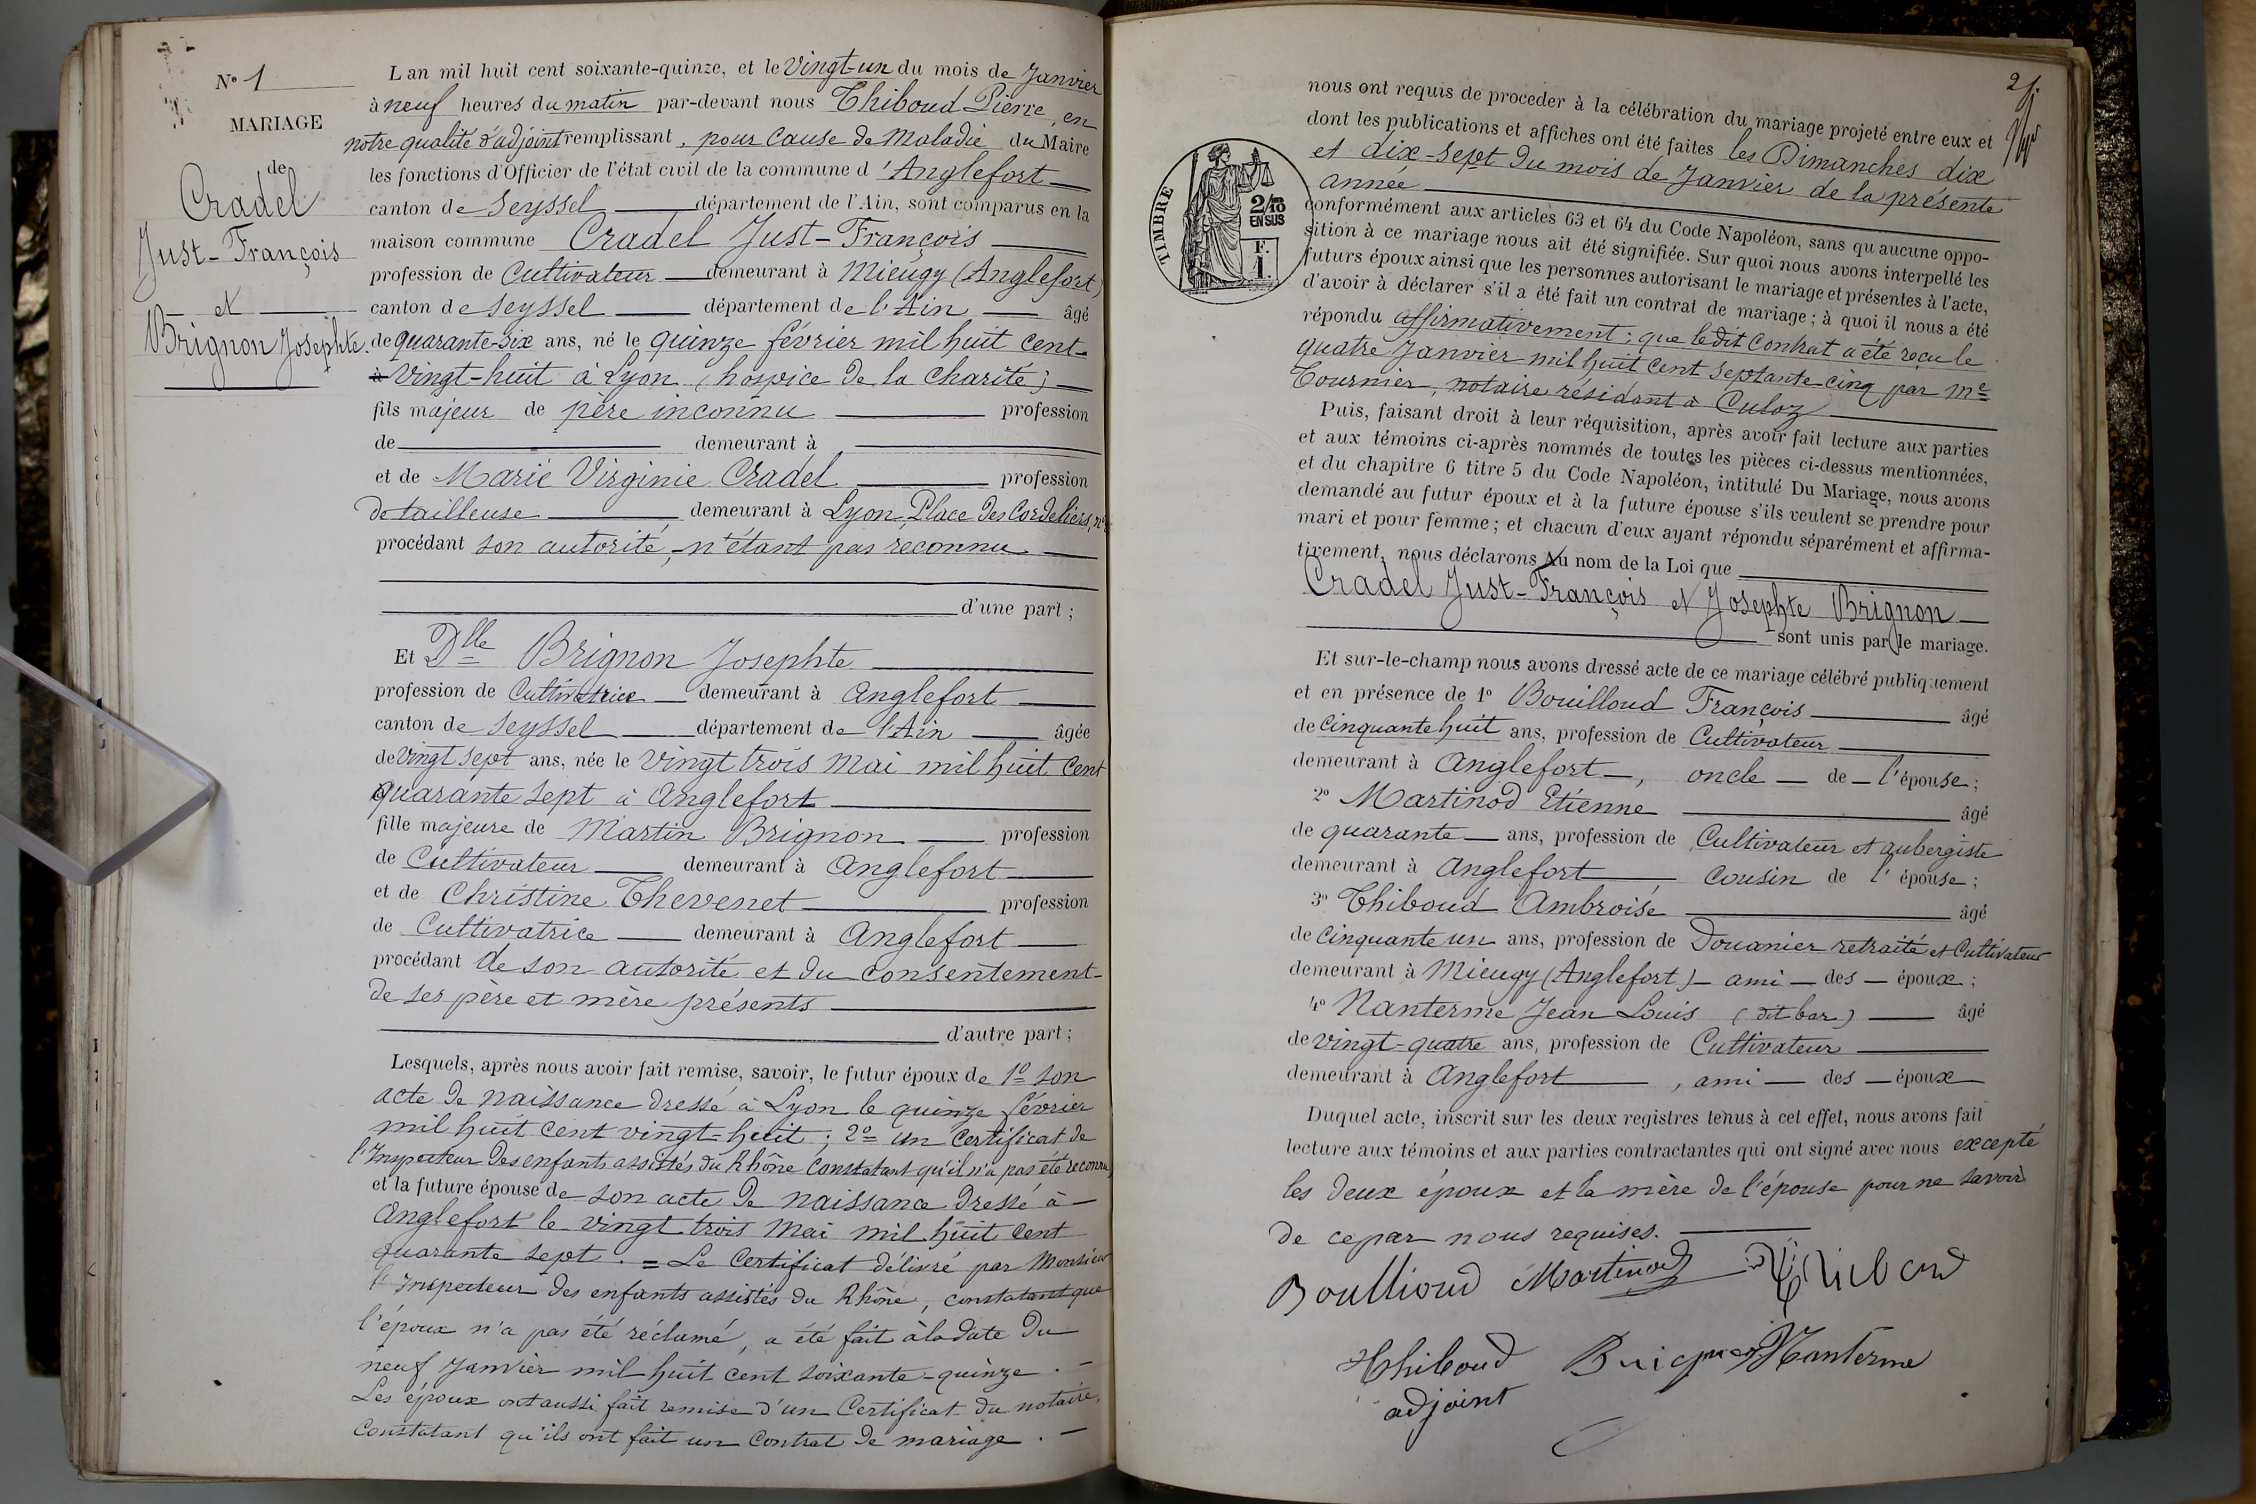 N° 1
MARIAGE
de
Cradel
Just-François
et
Brignon Josephte.
L'an mil huit cent soixante-quinze, et le Vingt-un du mois de Janvier
à neuf heures du matin par-devant nous Thiboud Pierre, en
notre qualité d'adjoint remplissant, pour cause de Maladie du Maire
les fonctions d'Officier de l'état civil de la commune d'Anglefort
canton de Seyssel département de l'Ain, sont comparus en la
maison commune Cradel Just-François
profession de Cultivateur demeurant à Mieugy (Anglefort)
canton de Seyssel département de l'Ain âgé
de quarante-six ans, né le quinze février mil huit cent-
à Vingt-huit à Lyon (hospice de la Charité;
fils majeur de père inconnu profession
de demeurant à
et de Marie Virginie Cradel profession
de tailleuse demeurant à Lyon, Place des Cordeliers, n°
procédant son autorité, n'étant pas reconnu
d'une part ;
Et Dlle Brignon Josephte
profession de Cultivatrice demeurant à Anglefort
canton de Seyssel département de l'Ain âgée
de Vingt sept ans, née le Vingt trois Mai mil huit Cent
quarante sept à Anglefort
fille majeure de Martin Brignon profession
de Cultivateur demeurant à Anglefort
et de Christine Thevenet profession
de Cultivatrice demeurant à Anglefort
procédant de son autorité et du consentement-
de ses père et mère présents
d'autre part ;
Lesquels, après nous avoir fait remise, savoir, le futur époux de 1° son
acte de naissance dressé à Lyon le quinze février
mil huit cent vingt-huit ; 2° un Certificat de
l'Inspecteur des enfants assistés du Rhône Constatant qu'il n'a pas été reconnu,
et la future épouse de son acte de naissance dressé à
Anglefort le vingt trois Mai mil huit Cent
quarante sept. = Le Certificat délivré par Monsieur
l'Inspecteur des enfants assistés du Rhône, constatant que
l'époux n'a pas été réclamé, a été fait à la date du
neuf Janvier mil huit cent soixante-quinze. -
Les époux ont aussi fait remise d'un Certificat du notaire,
Constatant qu'ils ont fait un Contrat de mariage. -
2
TIMBRE
2/10
EN SUS
F.
1
nous ont requis de proceder à la célébration du mariage projeté entre eux et
dont les publications et affiches ont été faites les Dimanches dix
et dix-sept du mois de Janvier de la présente
année
conformément aux articles 63 et 64 du Code Napoléon, sans qu'aucune oppo-
sition à ce mariage nous ait été signifiée. Sur quoi nous avons interpellé les
futurs époux ainsi que les personnes autorisant le mariage et présentes à l'acte,
d'avoir à déclarer s'il a été fait un contrat de mariage ; à quoi il nous a été
répondu affirmativement ; que le dit Contrat a été reçu le
quatre Janvier mil huit Cent Septante cinq par Me
Tournier, notaire résidant à Culoz
Puis, faisant droit à leur réquisition, après avoir fait lecture aux parties
et aux témoins ci-après nommés de toutes les pièces ci-dessus mentionnées,
et du chapitre 6 titre 5 du Code Napoléon, intitulé Du Mariage, nous avons
demandé au futur époux et à la future épouse s'ils veulent se prendre pour
mari et pour femme ; et chacun d'eux ayant répondu séparément et affirma-
tivement, nous déclarons Au nom de la Loi que
Cradel Just-François et Josephte Brignon
sont unis par le mariage.
Et sur-le-champ nous avons dressé acte de ce mariage célébré publiquement
et en présence de 1° Bouilloud François âgé
de cinquante huit ans, profession de Cultivateur
demeurant à Anglefort, oncle de l'épouse ;
2° Martinod Etienne âgé
de quarante ans, profession de Cultivateur et aubergiste
demeurant à Anglefort, Cousin de l'épouse ;
3° Thiboud Ambroise âgé
de cinquante un ans, profession de Douanier retraité et Cultivateur
demeurant à Mieugy (Anglefort) ami des époux ;
4° Nanterme Jean Louis (dit bar) âgé
de vingt-quatre ans, profession de Cultivateur
demeurant à Anglefort, ami des époux
Duquel acte, inscrit sur les deux registres tenus à cet effet, nous avons fait
lecture aux témoins et aux parties contractantes qui ont signé avec nous excepté
les deux époux et la mère de l'épouse pour ne savoir
de ce par nous requises.
Boullioud Martinod Thiboud
Thiboud Brignon Nanterme
adjoint